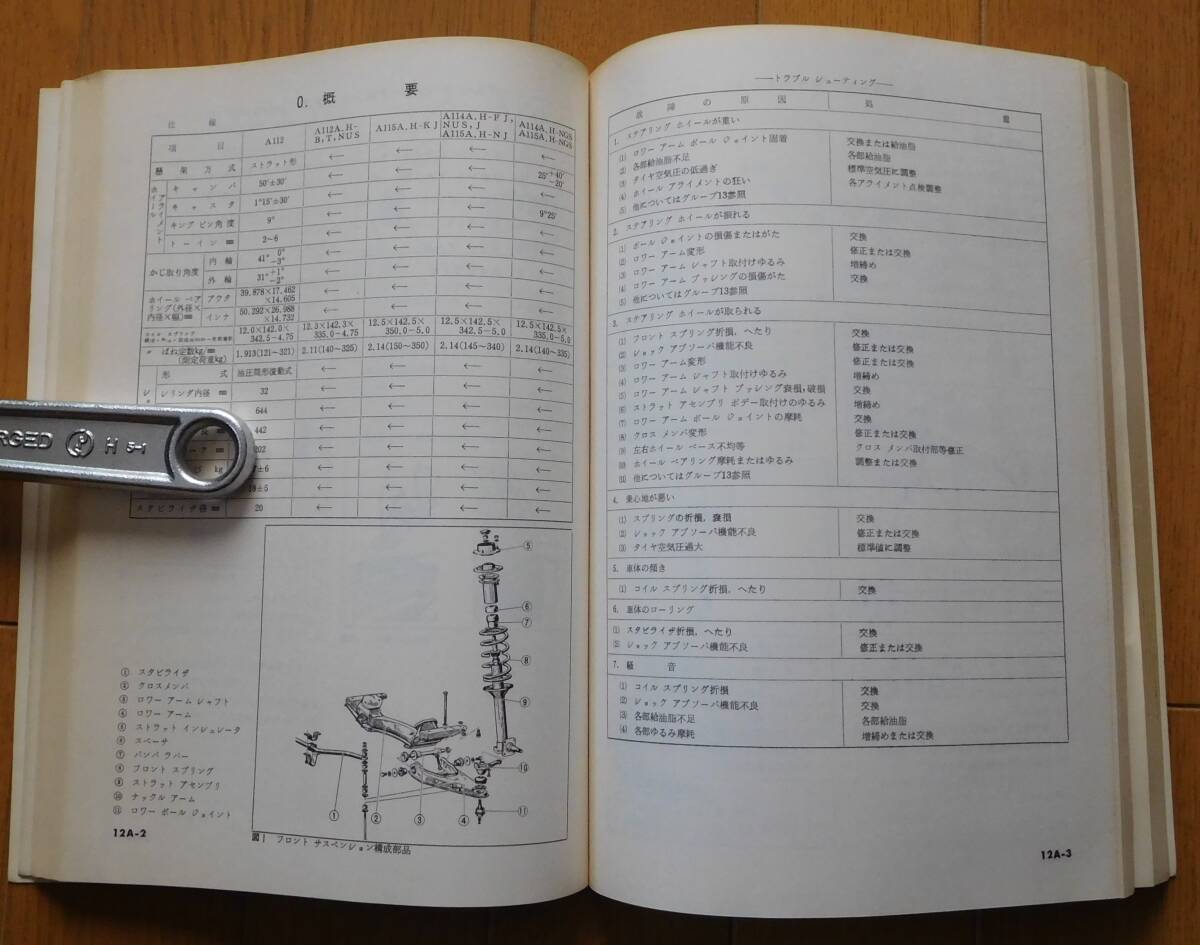 0. 概 要
仕 様
項 目 A112 A112A, H-B, T, NUS A115A, H-K J A114A, H-F J, NUS, J A115A, H-N J A114A, H-NGS A115A, H-NGS
懸架方式 ストラット形 ← ← ← ←
ホイールアライメント
キャンバ 50′±30′ ← ← ← 25′+40′−20′
キャスタ 1°15′±30′ ← ← ←
キング ピン角度 9° ← ← ← 9°25′
トーイン ㎜ 2~6 ← ← ← ←
かじ取り角度 内輪 41° 0°−3° ← ← ← ←
外輪 31°+1°−2° ← ← ← ←
ホイール ベアリング(外径×内径×幅)㎜ アウタ 39.878×17.462×14.605 ← ← ← ←
インナ 50.292×26.988×14.732 ← ← ← ←
コイル スプリング 12.0×142.0×342.5-4.75 12.3×142.3×335.0-4.75 12.5×142.5×350.0-5.0 12.5×142.5×342.5-5.0 12.5×142.5×335.0-5.0
〃 ばね定数kg/㎜(測定荷重kg) 1.913(121~321) 2.11(140~325) 2.14(150~350) 2.14(145~340) 2.14(140~335)
形式 油圧筒形復動式 ← ← ← ←
シリング内径 ㎜ 32 ← ← ← ←
644 ← ← ← ←
442 ← ← ← ←
202 ← ← ← ←
kg ±6 ← ← ← ←
±5 ← ← ← ←
スタビライザ径 ㎜ 20 ← ← ← ←
RGED H 5-1
⑤
⑥
⑦
⑧
⑨
⑩
① ② ③ ④ ⑪
① スタビライザ
② クロスメンバ
③ ロワー アーム シャフト
④ ロワー アーム
⑤ ストラット インシュレータ
⑥ スペーサ
⑦ バンパ ラバー
⑧ フロント スプリング
⑨ ストラット アセンブリ
⑩ ナックル アーム
⑪ ロワー ボール ジョイント
図1 フロント サスペンション構成部品
12A-2
——トラブル シューティング——
故障の原因 処 置
1. ステアリング ホイールが重い
(1) ロワー アーム ボール ジョイント固着 交換または給油脂
(2) 各部給油脂不足 各部給油脂
(3) タイヤ空気圧の低過ぎ 標準空気圧に調整
(4) ホイール アライメントの狂い 各アライメント点検調整
(5) 他についてはグループ13参照
2. ステアリング ホイールが振れる
(1) ボール ジョイントの損傷またはがた 交換
(2) ロワー アーム変形 修正または交換
(3) ロワー アーム シャフト取付けゆるみ 増締め
(4) ロワー アーム ブッシングの損傷がた 交換
(5) 他についてはグループ13参照
3. ステアリング ホイールが取られる
(1) フロント スプリング折損, へたり 交換
(2) ショック アブソーバ機能不良 修正または交換
(3) ロワー アーム変形 修正または交換
(4) ロワー アーム シャフト取付けゆるみ 増締め
(5) ロワー アーム シャフト ブッシング衰損,破損 交換
(6) ストラット アセンブリ ボデー取付けのゆるみ 増締め
(7) ロワー アーム ボール ジョイントの摩耗 交換
(8) クロス メンバ変形 修正または交換
(9) 左右ホイール ベース不均等 クロス メンバ取付部等修正
(10) ホイール ベアリング摩耗またはゆるみ 調整または交換
(11) 他についてはグループ13参照
4. 乗心地が悪い
(1) スプリングの折損, 衰損 交換
(2) ショック アブソーバ機能不良 修正または交換
(3) タイヤ空気圧過大 標準値に調整
5. 車体の傾き
(1) コイル スプリング折損, へたり 交換
6. 車体のローリング
(1) スタビライザ折損, へたり 交換
(2) ショック アブソーバ機能不良 修正または交換
7. 騒 音
(1) コイル スプリング折損 交換
(2) ショック アブソーバ機能不良 交換
(3) 各部給油脂不足 各部給油脂
(4) 各部ゆるみ摩耗 増締めまたは交換
12A-3